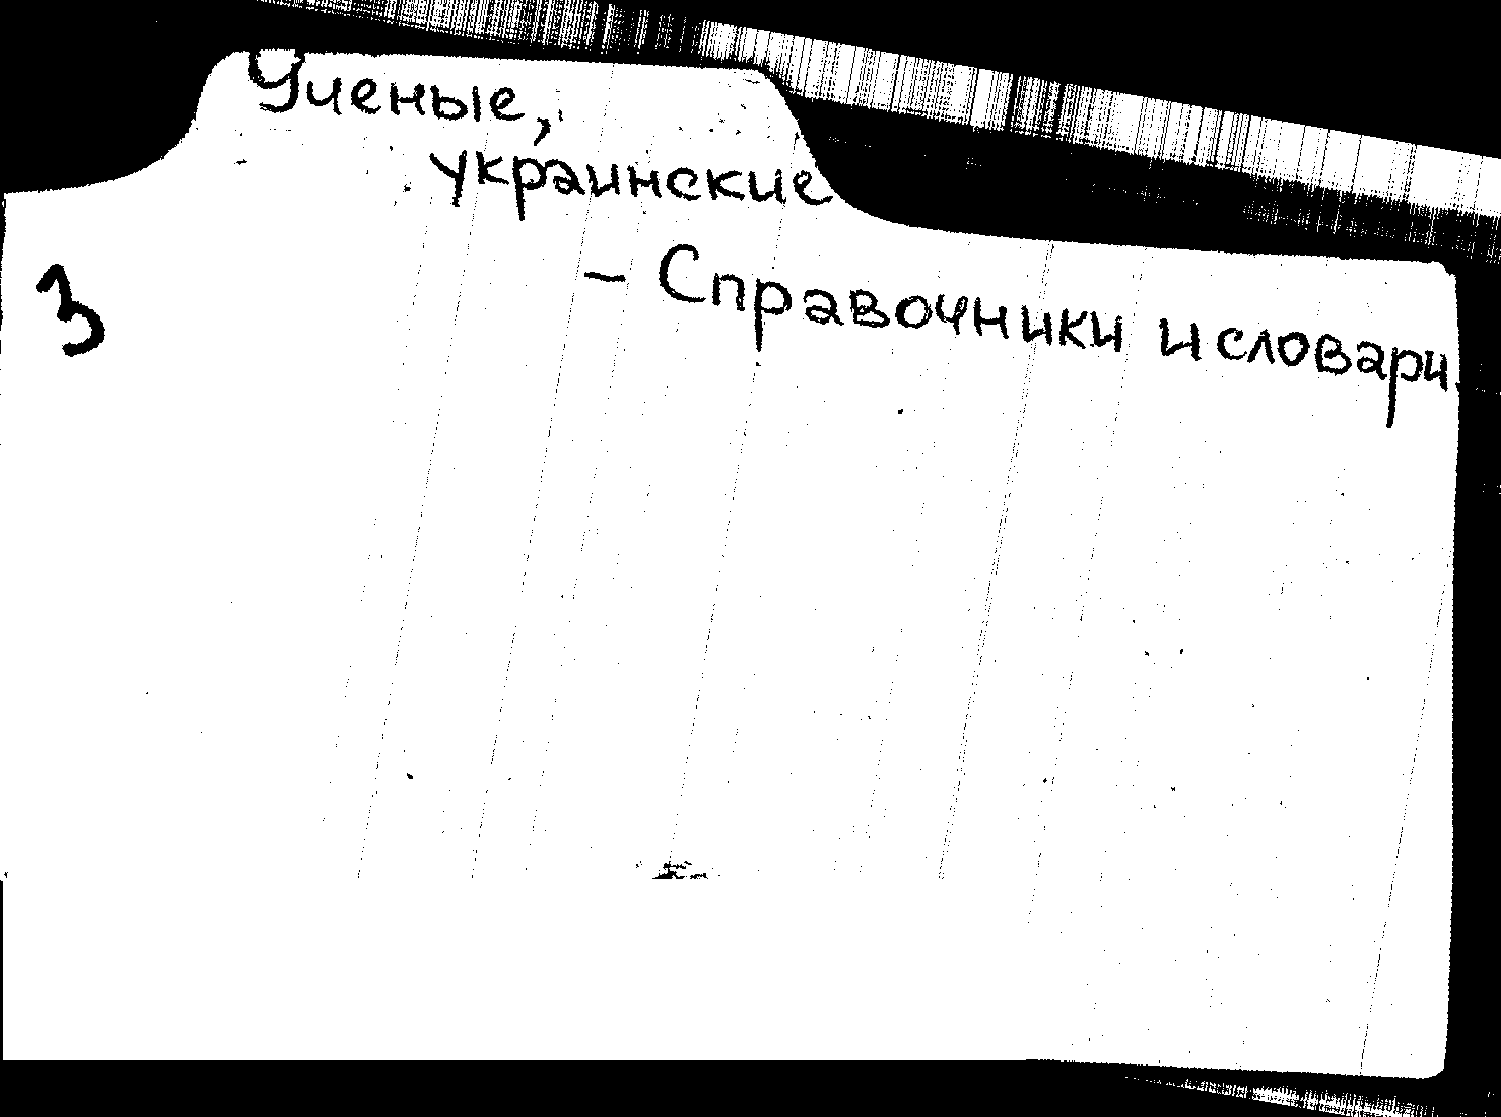 Ученые,
украинские
- Справочники и словари
3